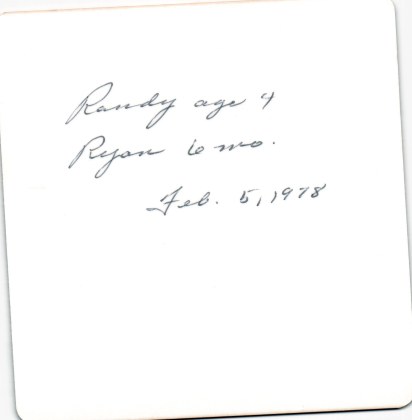 Randy age 4
Ryan 6 mo.
Feb. 5, 1978